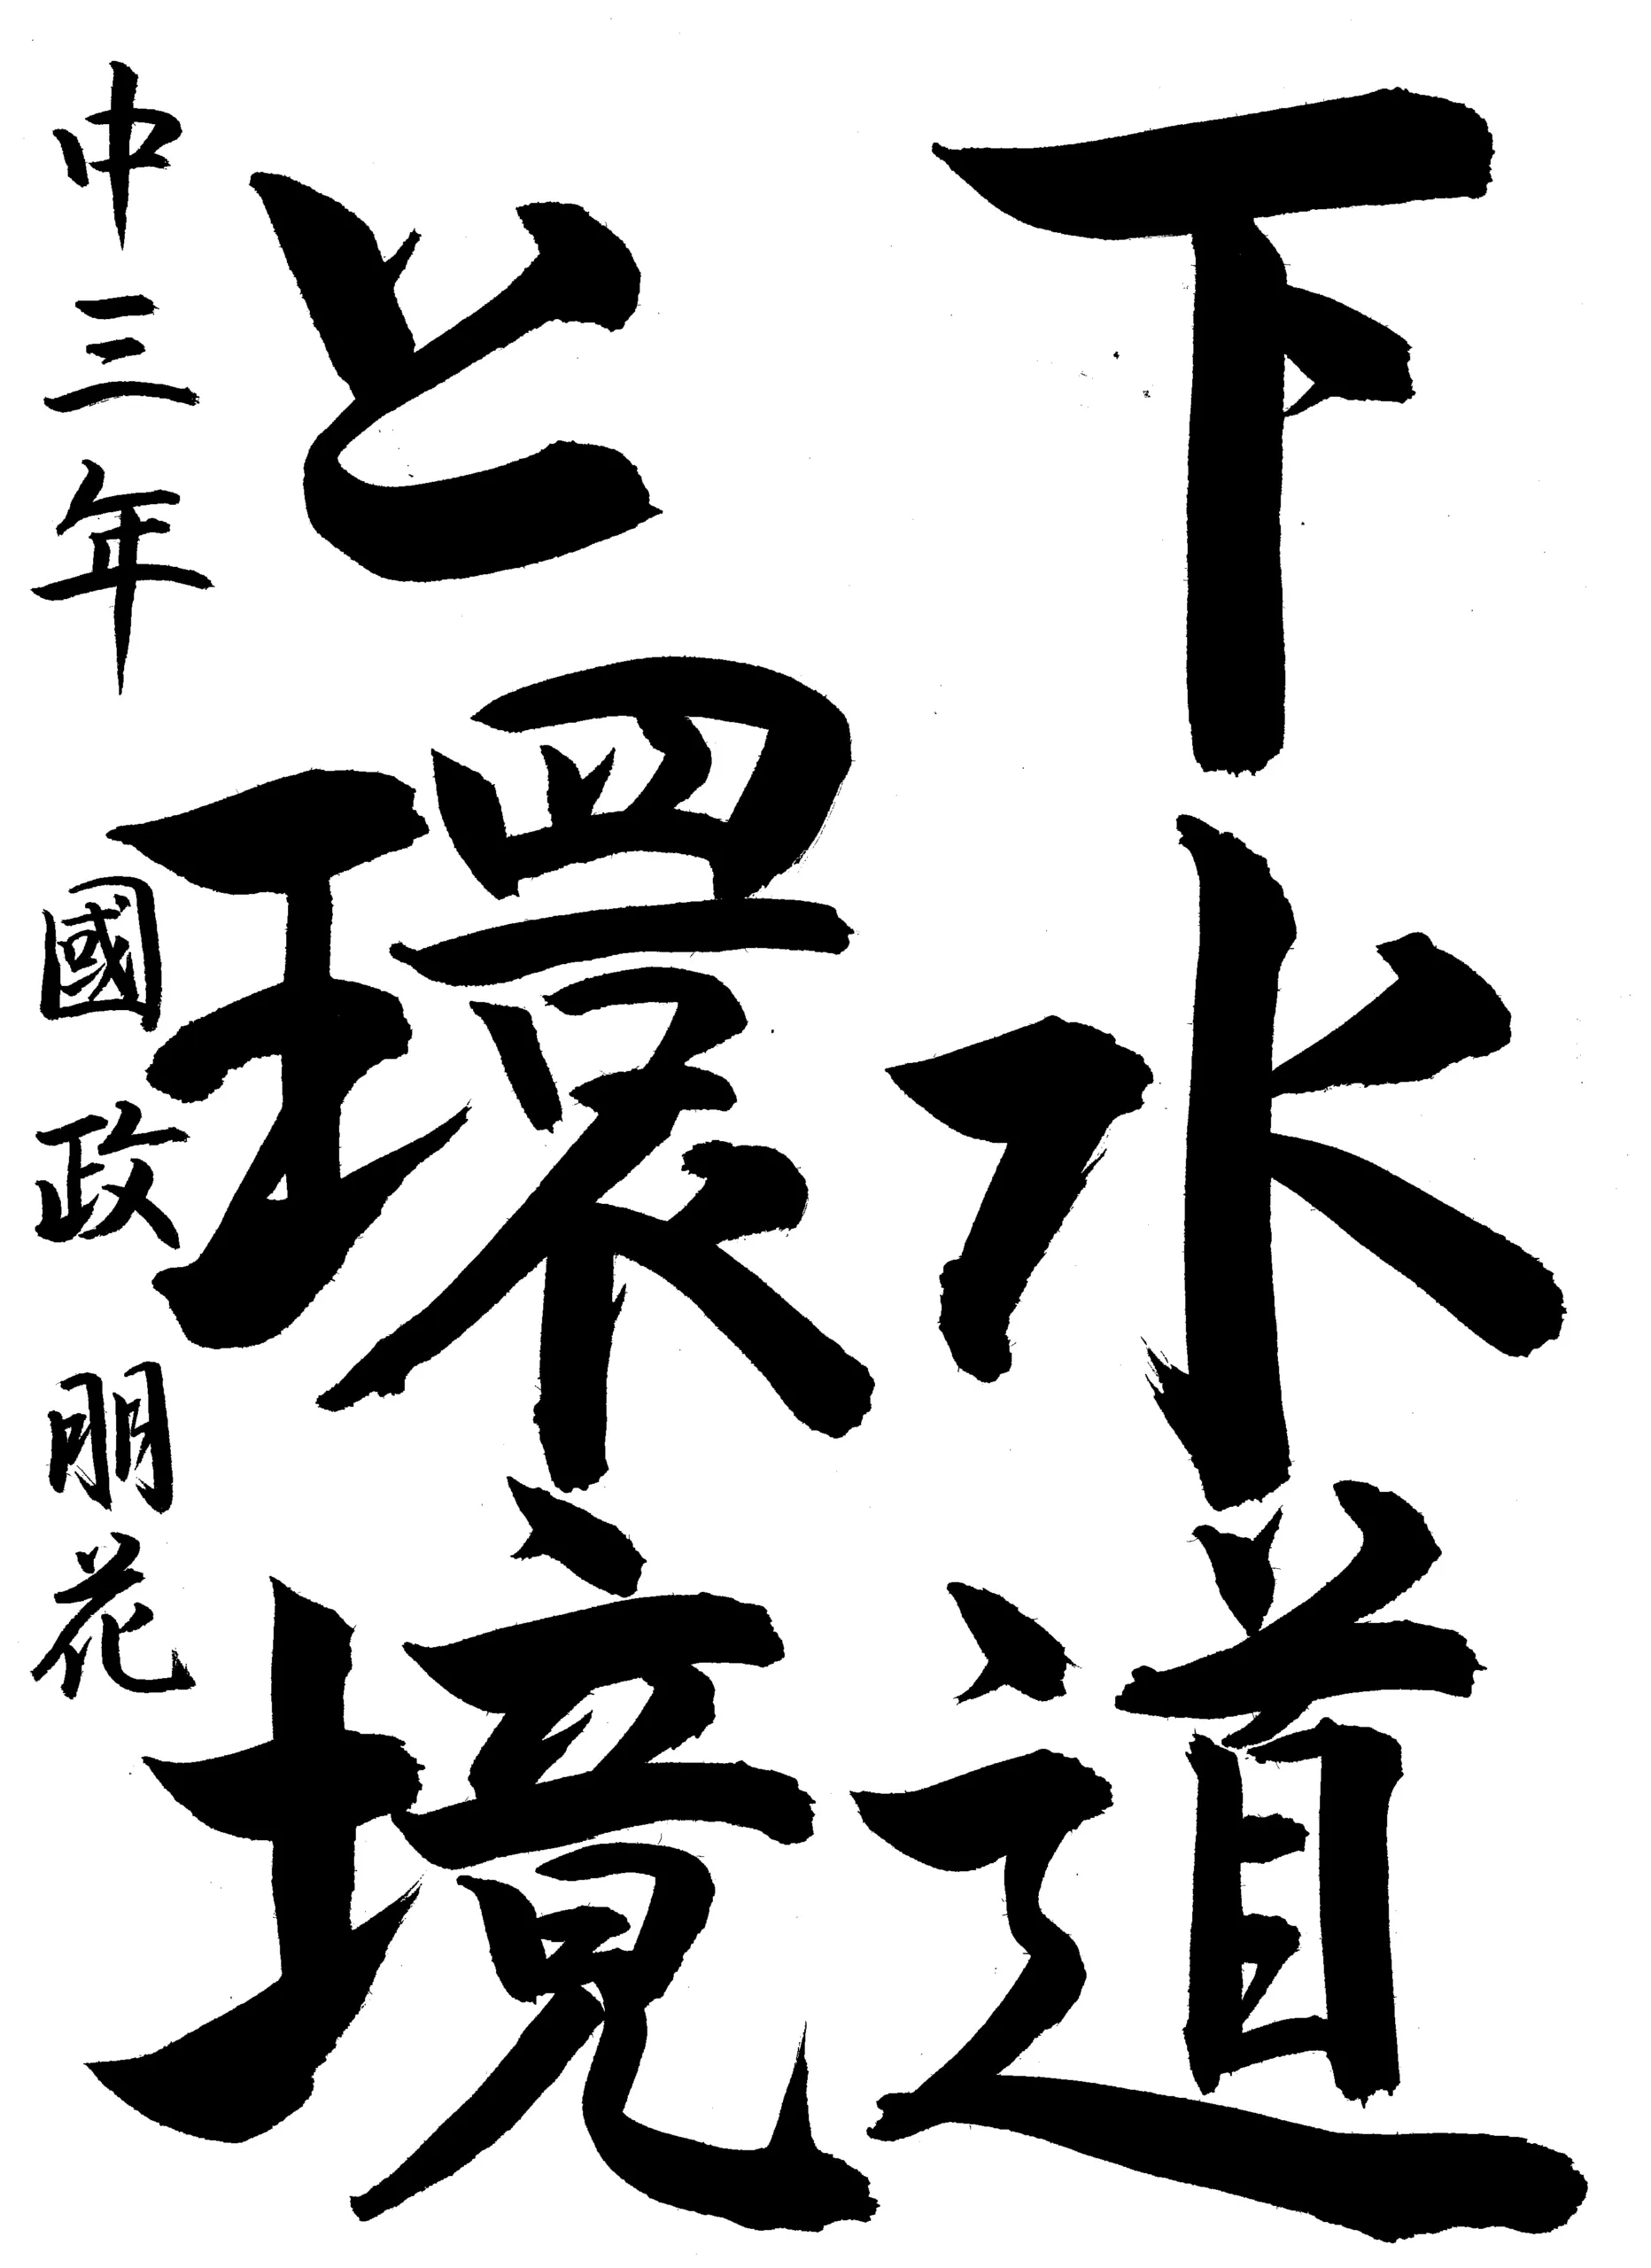 下水道
と環境
中三年 國政朋花